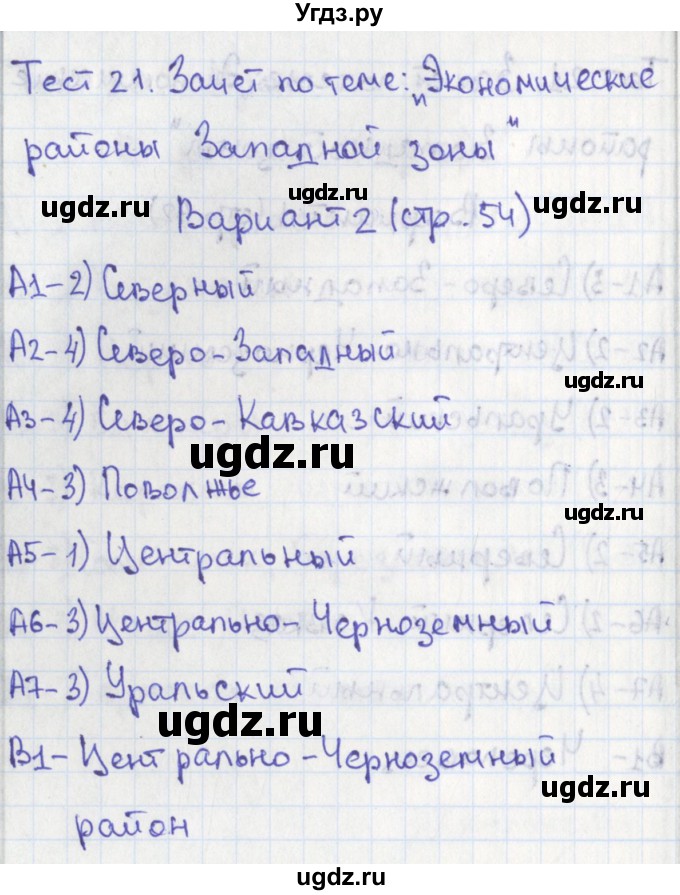 Угдз.ру
Тест 21. Зачет по теме: „Экономические
районы Западной зоны"
ugdz.ru ugdz.ru ugdz.ru
Вариант 2 (стр. 54)
А1-2) Северный
А2-4) Северо-Западный
ugdz.ru ugdz.ru
А3-4) Северо-Кавказский
ugdz.ru
А4-3) Поволжье
ugdz.ru
А5-1) Центральный
А6-3) Центрально-Черноземный
ugdz.ru ugdz.ru
А7-3) Уральский
ugdz.ru
В1-Центрально-Черноземный
ugdz.ru ugdz.ru
район
ugdz.ru